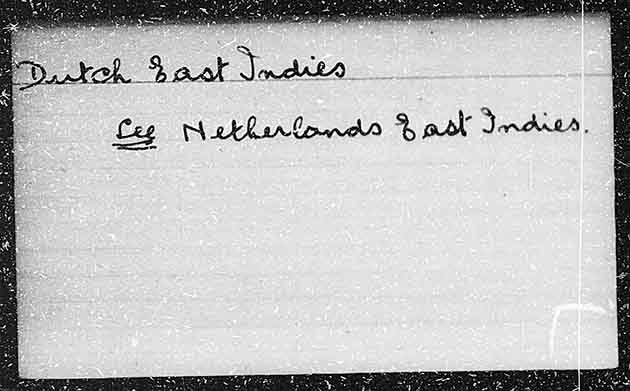 Dutch East Indies
See Netherlands East Indies.